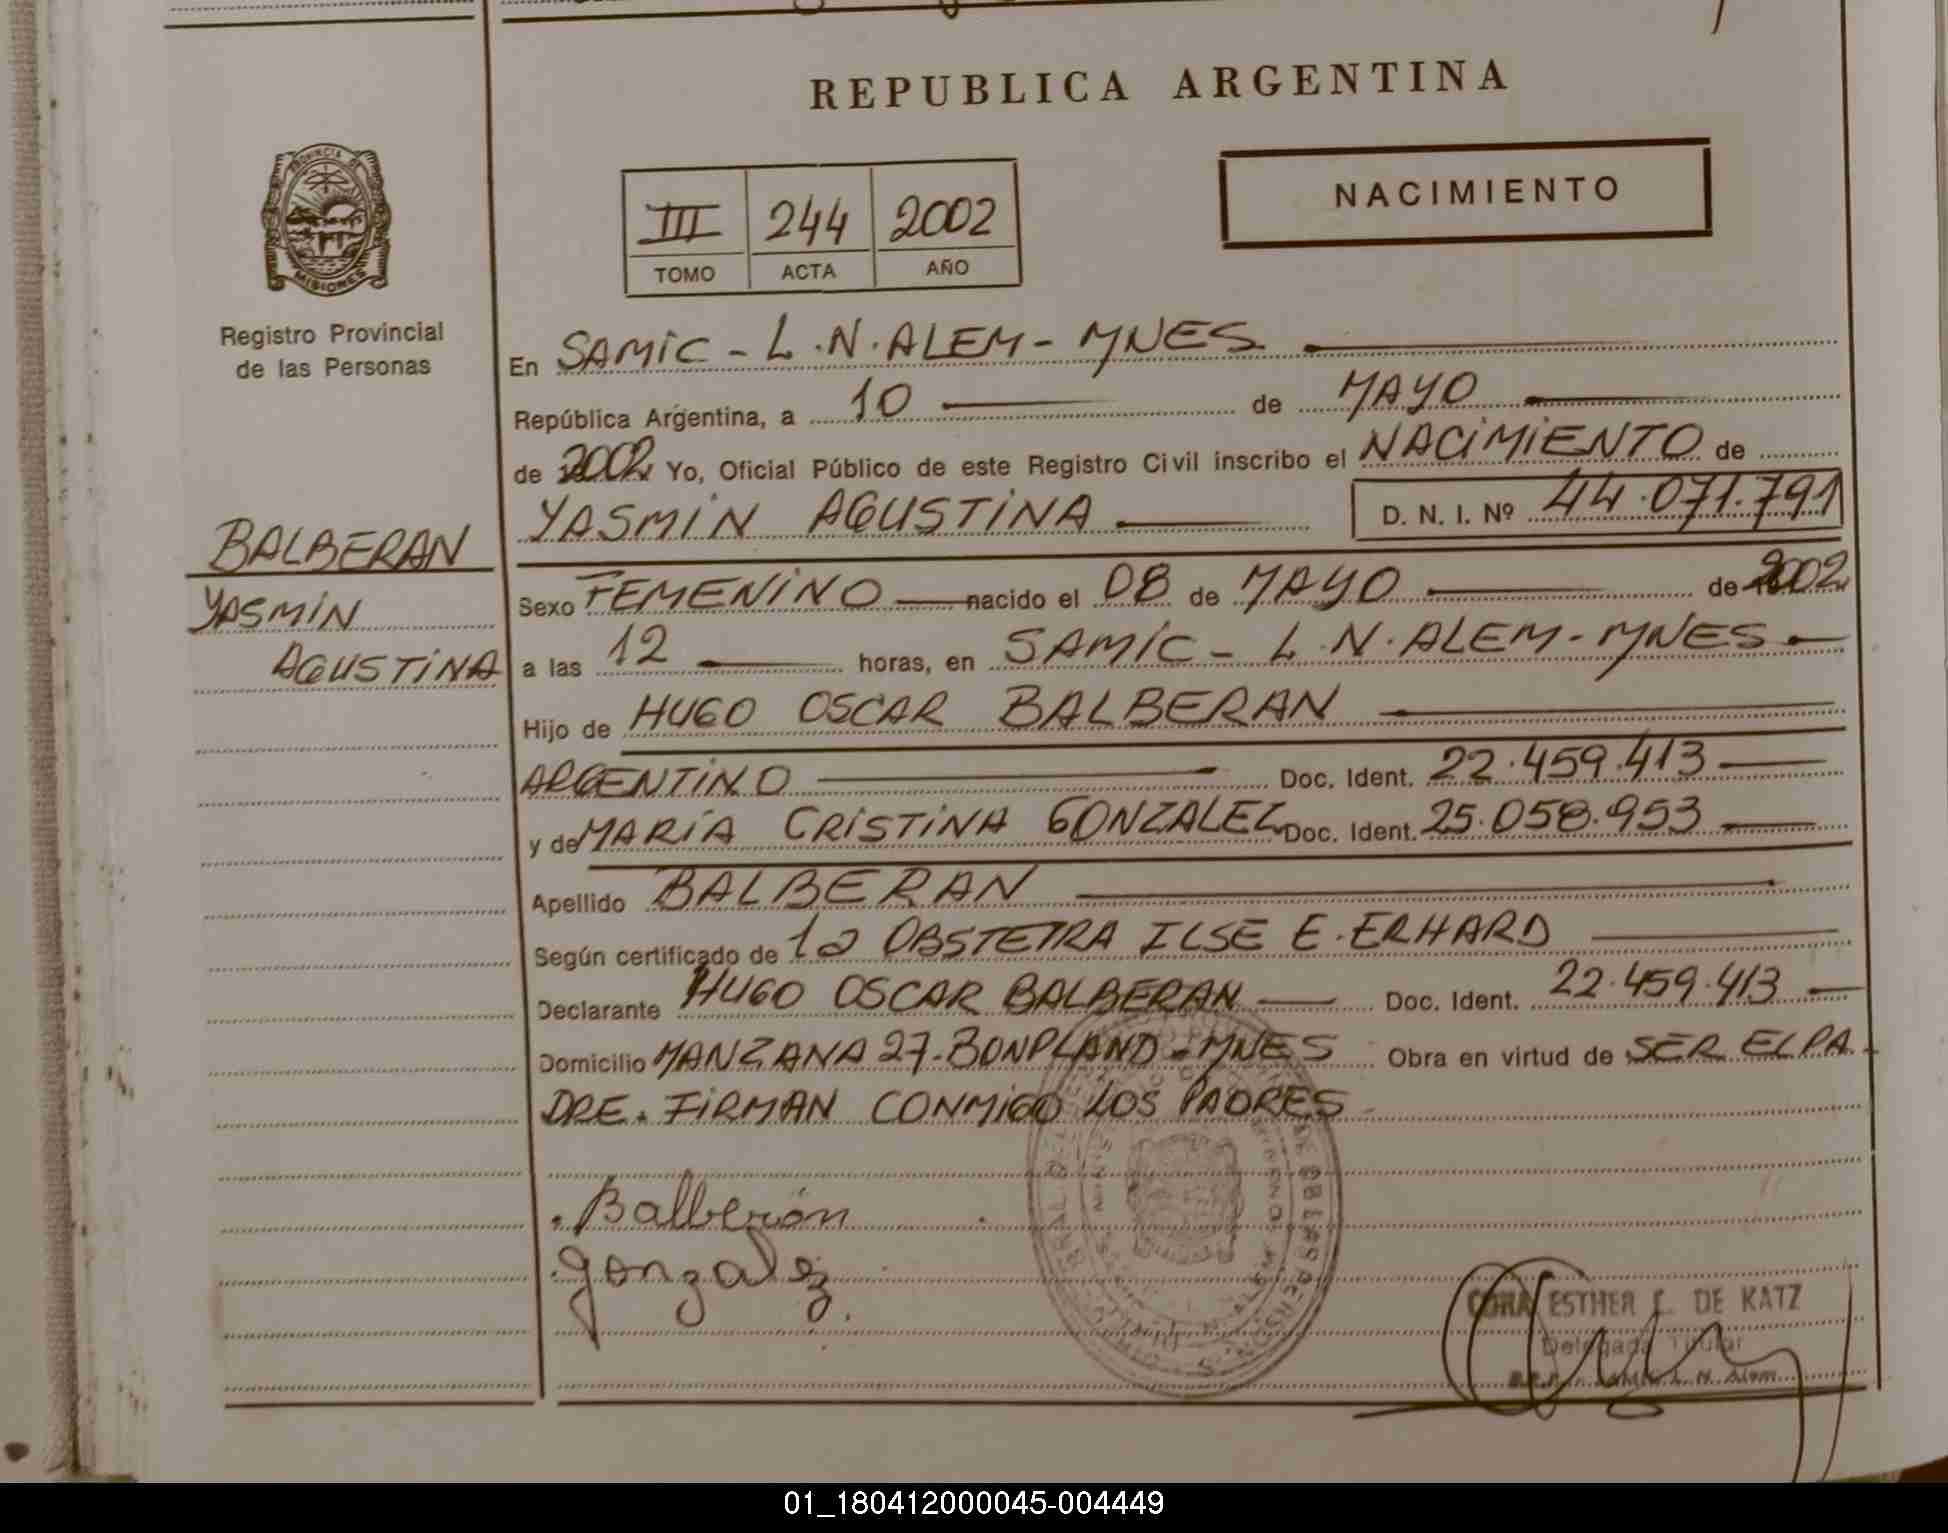 REPUBLICA ARGENTINA
PROVINCIA DE
MISIONES
Registro Provincial
de las Personas
III 244 2002
TOMO ACTA AÑO
NACIMIENTO
En SAMIC - L.N. ALEM - MNES
República Argentina, a 10 de MAYO
de 2002 Yo, Oficial Público de este Registro Civil inscribo el NACIMIENTO de
YASMIN AGUSTINA D. N. I. Nº 44.071.791
BALBERAN
YASMIN
AGUSTINA
Sexo FEMENINO nacido el 08 de MAYO de 2002
a las 12 horas, en SAMIC - L.N. ALEM - MNES
Hijo de HUGO OSCAR BALBERAN
ARGENTINO Doc. Ident. 22.459.413
y de MARIA CRISTINA GONZALEZ Doc. Ident. 25.058.953
Apellido BALBERAN
Según certificado de la OBSTETRA ILSE E. ERHARD
Declarante HUGO OSCAR BALBERAN Doc. Ident. 22.459.413
Domicilio MANZANA 27 - BONPLAND - MNES Obra en virtud de SER EL PA-
DRE. FIRMAN CONMIGO LOS PADRES
Balberán
Gonzalez
ESTHER DE KATZ
Delegada Titular
L. N. Alem
01_180412000045-004449